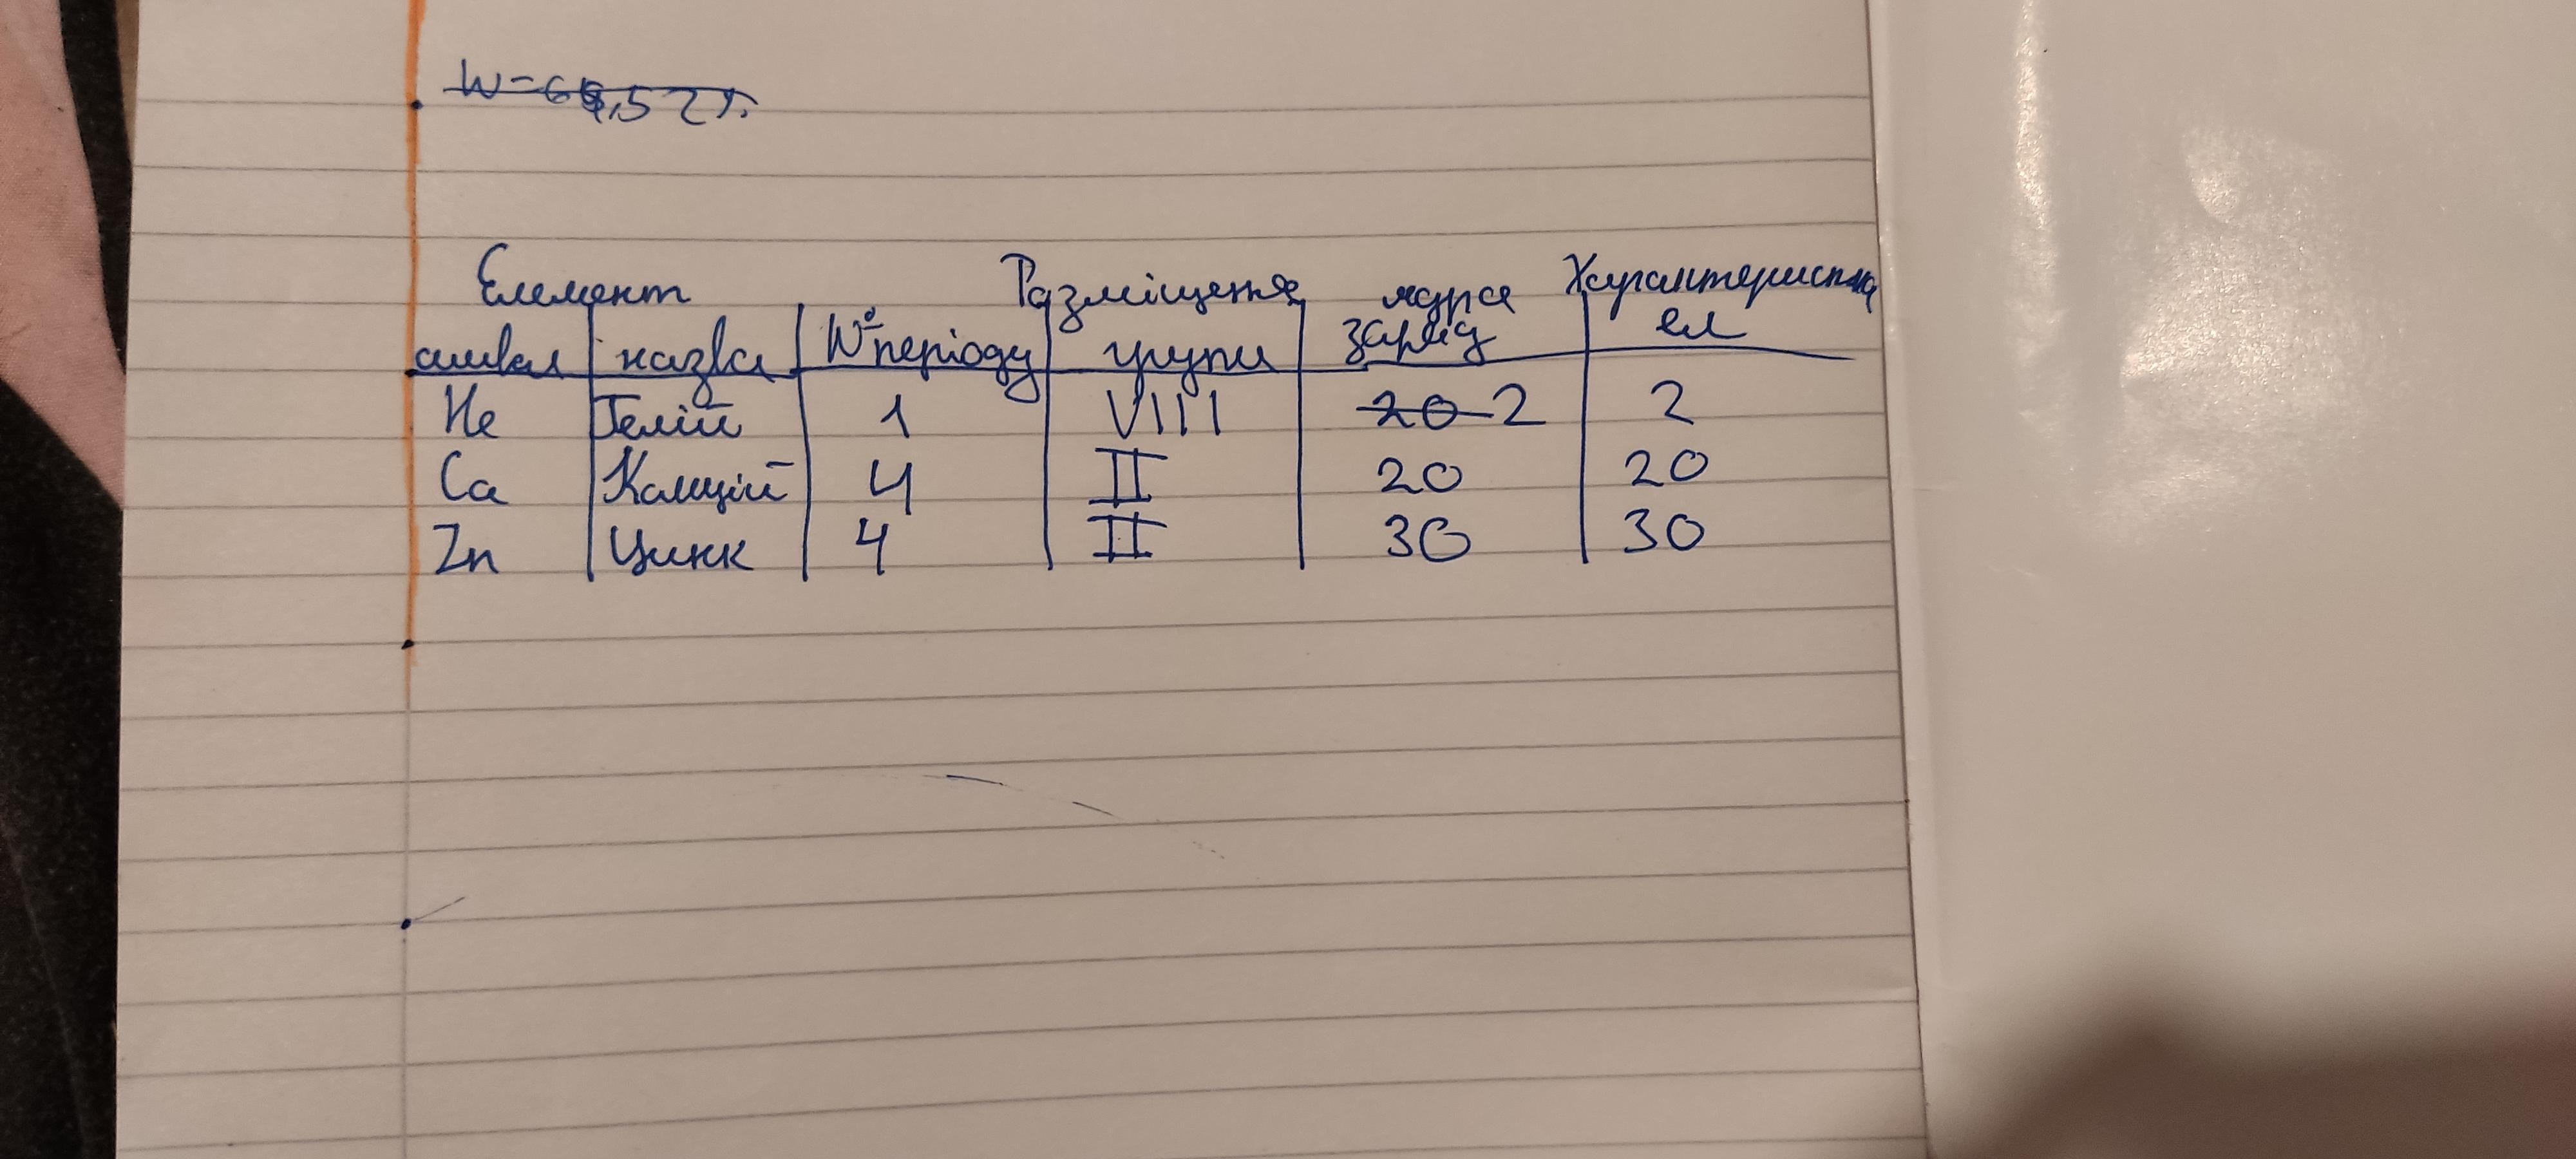 Елемент Розміщення ядра Характеристика
символ назва № періоду групи заряд ел
He Гелій 1 VIII 20 2 2
Ca Кальцій 4 II 20 20
Zn Цинк 4 II 30 30